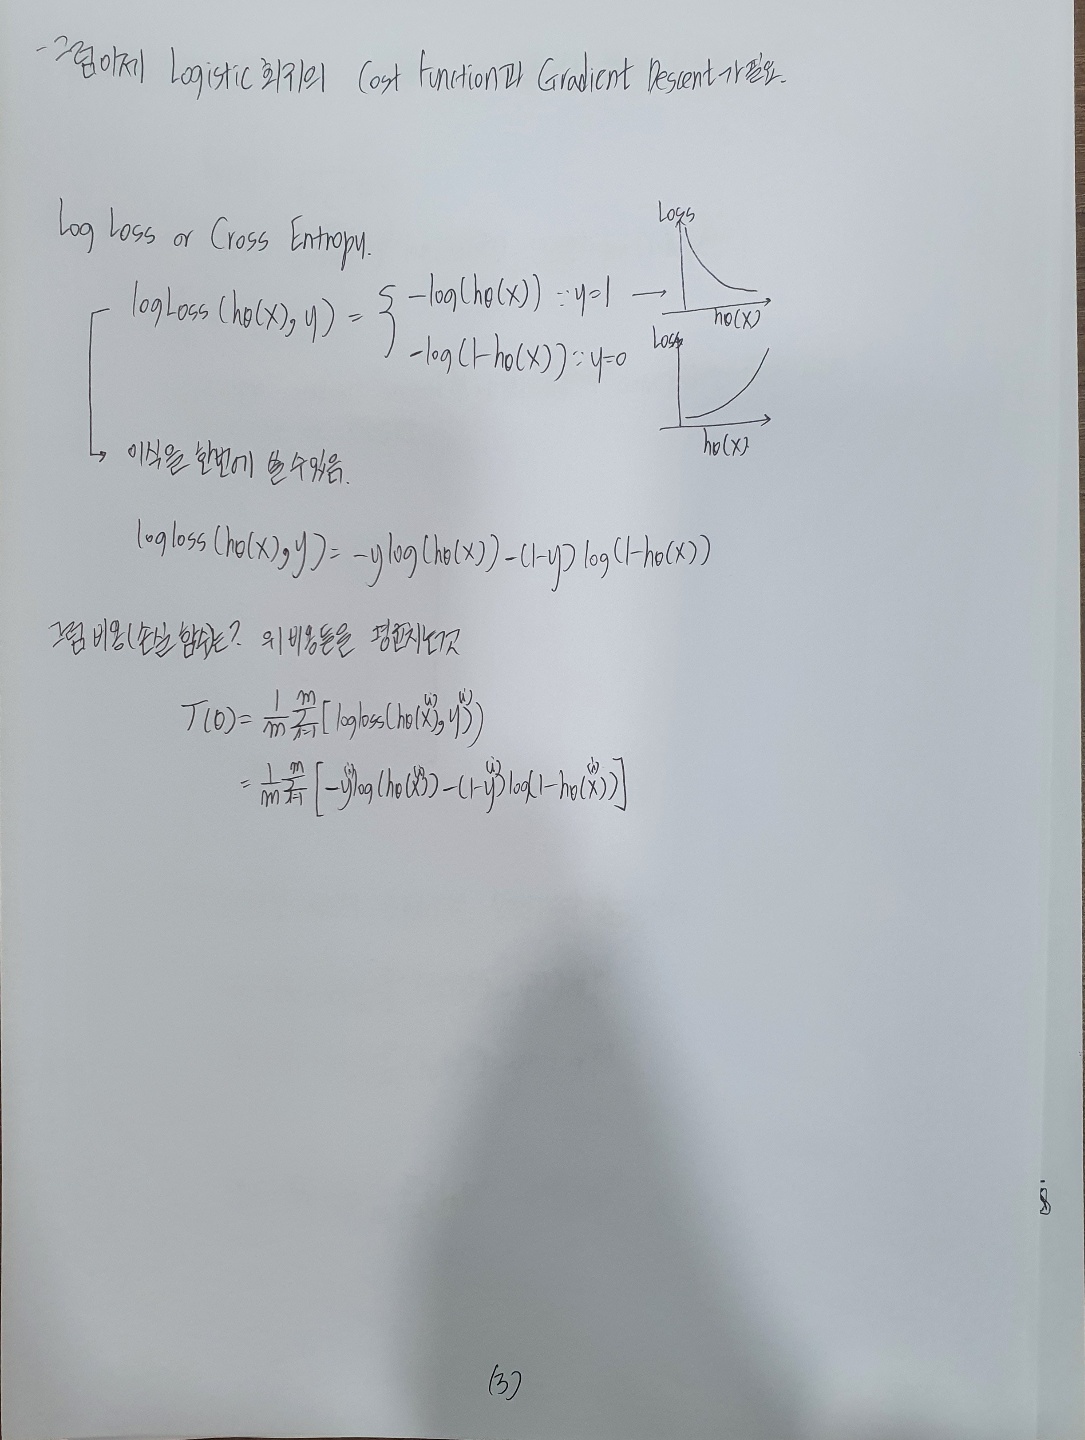 - 그럼이제 Logistic 회귀의 Cost Function과 Gradient Descent가 필요.
Log Loss or Cross Entropy.
logLoss(hθ(x), y) = { -log(hθ(x)) ∵ y=1 →
-log(1-hθ(x)) ∵ y=0
Loss
hθ(x)
Loss
hθ(x)
↳ 이식을 한번에 쓸 수 있음.
logloss(hθ(x), y) = -y log(hθ(x)) - (1-y) log(1-hθ(x))
그럼 비용(손실 함수)는? 위 비용들을 평균치는것
J(θ) = 1/m Σ_{i=1}^{m} [logloss(hθ(x⁽ⁱ⁾), y⁽ⁱ⁾)
= 1/m Σ_{i=1}^{m} [-y⁽ⁱ⁾log(hθ(x⁽ⁱ⁾)) - (1-y⁽ⁱ⁾)log(1-hθ(x⁽ⁱ⁾))]
(3)